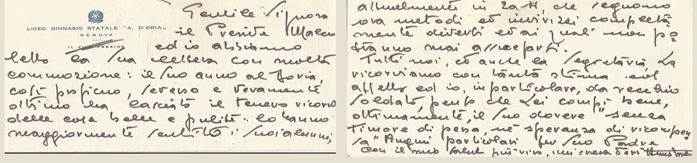 Gentile Signora
LICEO GINNASIO STATALE "A. D'ORIA"
GENOVA
il Preside
ed io abbiamo
letto la Sua lettera con molta
commozione: il Suo anno al Doria,
così proficuo, sereno e veramente
ottimo ha lasciato il tenero ricordo
delle cose belle e pulite: lo hanno
maggiormente sentito i Suoi alunni,
attualmente in 2a H, che seguono
ora metodi ed indirizzi completa
mente diversi ed ai quali non po
tranno mai assuefarsi.
Tutti noi, ed anche la Segreteria, La
ricordiamo con tanta stima ed
affetto ed io, in particolare, da vecchio
soldato, penso che Lei compì bene,
ottimamente, il Suo dovere "senza
timore di pena, né speranza di ricompen
sa" Auguri particolari per Suo Padre
con il mio saluto più vivo,